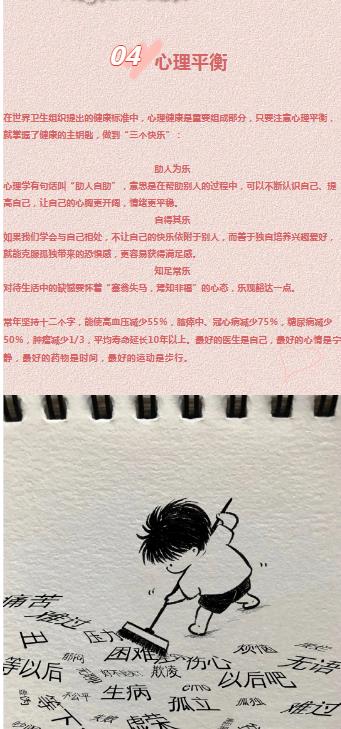 04 心理平衡
在世界卫生组织提出的健康标准中，心理健康是重要组成部分，只要注意心理平衡，
就掌握了健康的主钥匙，做到“三个快乐”：
助人为乐
心理学有句话叫“助人自助”，意思是在帮助别人的过程中，可以不断认识自己、提
高自己，让自己的心胸更开阔，情绪更平稳。
自得其乐
如果我们学会与自己相处，不让自己的快乐依附于别人，而善于独自培养兴趣爱好，
就能克服孤独带来的恐惧感，更容易获得满足感。
知足常乐
对待生活中的缺憾要怀着“塞翁失马，焉知非福”的心态，乐观豁达一点。
常年坚持十二个字，能使高血压减少55%，脑瘁中、冠心病减少75%，糖尿病减少
50%，肿瘤减少1/3，平均寿命延长10年以上。最好的医生是自己，最好的心情是宁
静，最好的药物是时间，最好的运动是步行。
痛苦
难过
压力
困难
伤心
烦恼
无语
等以后
欺凌
以后吧
不公平
生病
emo
孤立
孤独
难过
等下
失败
虚荣